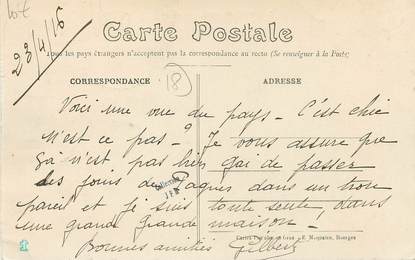 Lot
23/4/16
Carte Postale
Tous les pays étrangers n'acceptent pas la correspondance au recto (Se renseigner à la Poste)
CORRESPONDANCE
18
ADRESSE
Voici une vue du pays. C'est chic
n'est ce pas? Je vous assure que
ça n'est pas très gai de passer
les jours de Paques dans un trou
pareil et je suis toute seule, dans
une grande grande maison.
Bonnes amitiés Gilbert
Collection
E. Maquaire, Bourges